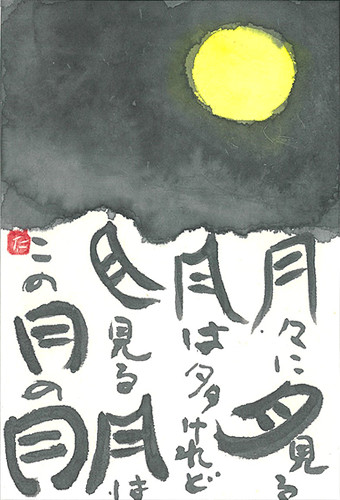 月々に月見る
月は多けれど
月見る月は
この月の月
た